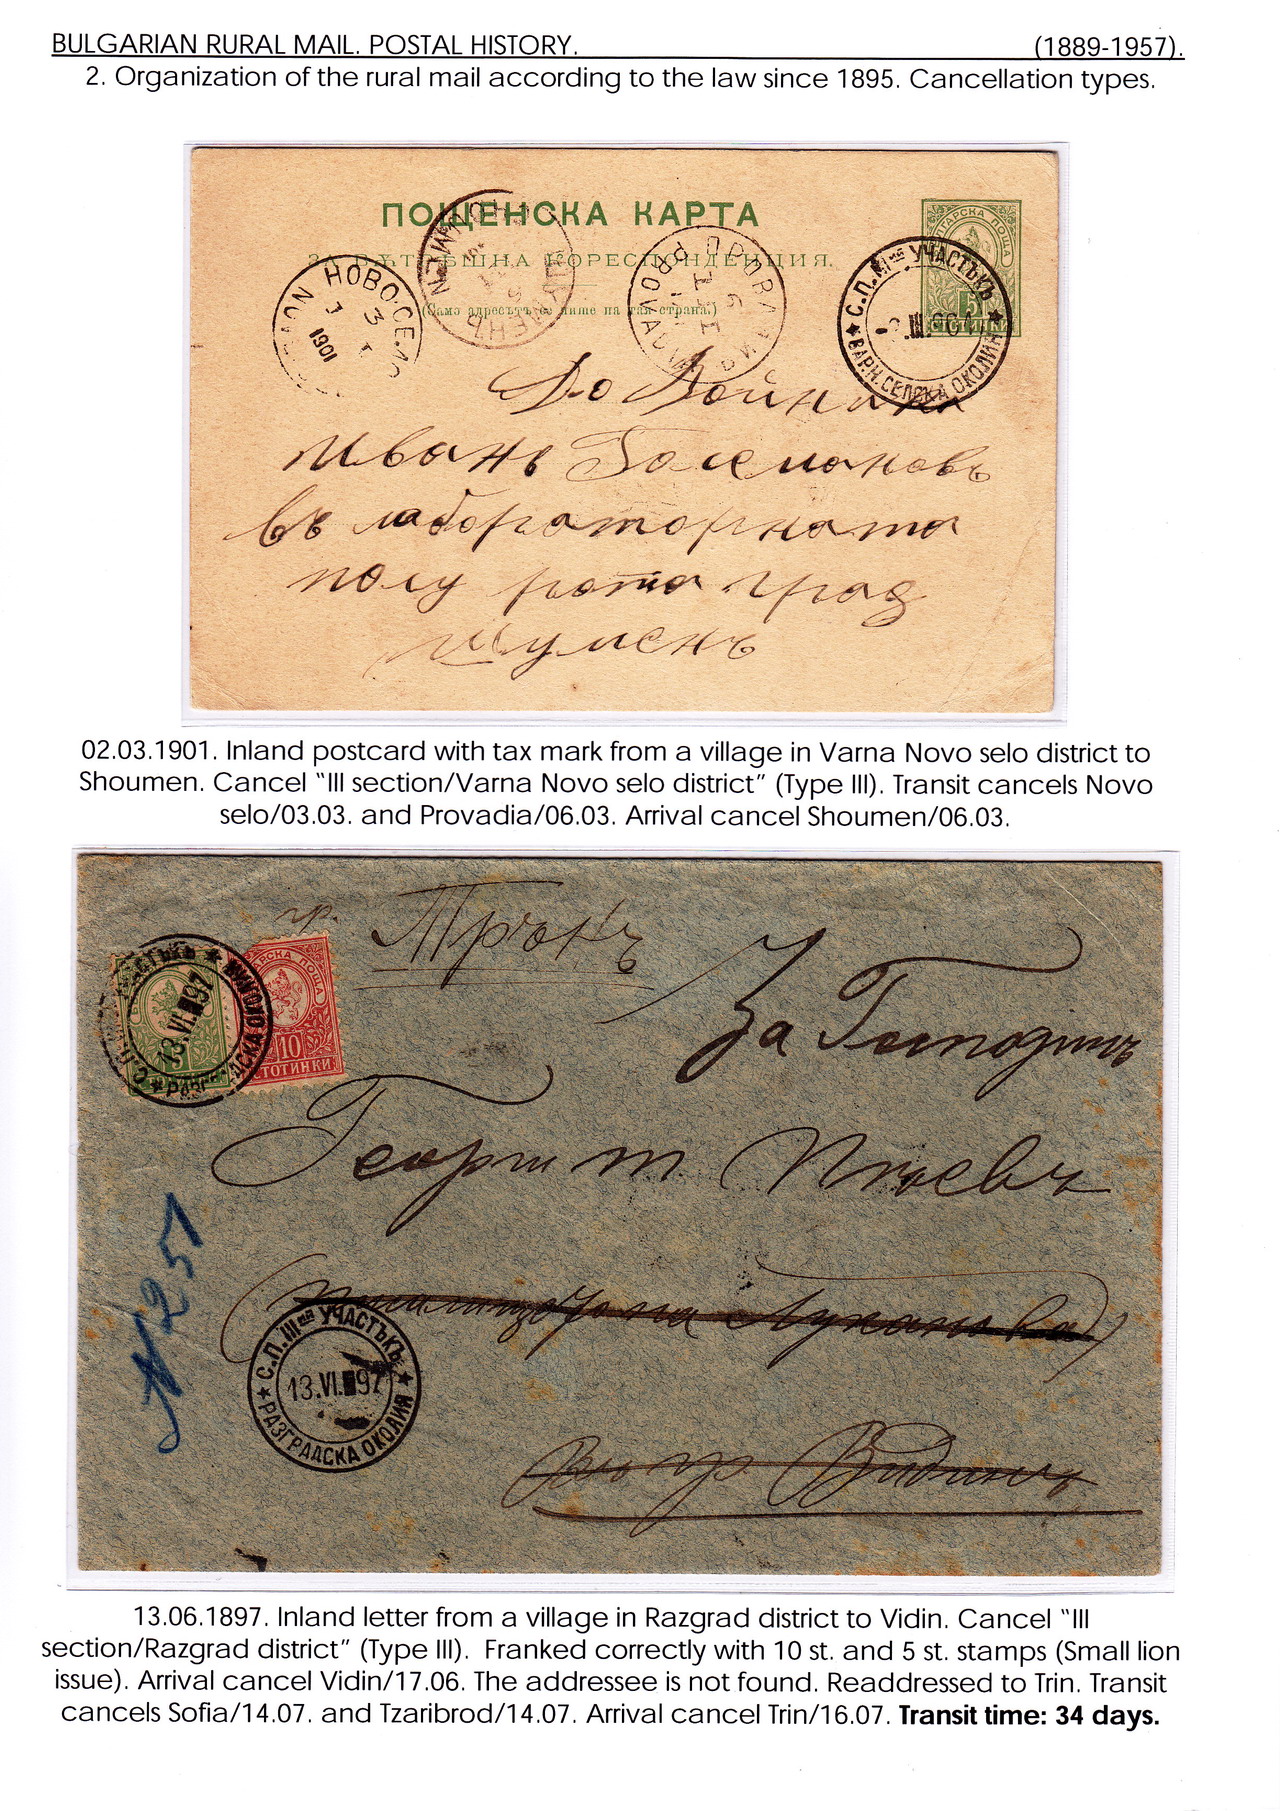 BULGARIAN RURAL MAIL. POSTAL HISTORY. (1889-1957).
2. Organization of the rural mail according to the law since 1895. Cancellation types.
ПОЩЕНСКА КАРТА
ЗА ВѪТРѢШНА КОРЕСПОНДЕНЦИЯ.
(Само адресътъ се пише на тая страна.)
НОВО-СЕЛО
3
1901
ШУМЕНЪ
ПРОВАДИЯ
6
PROVADIA
БЪЛГАРСКА ПОЩА
5
СТОТИНКИ
С.П. IIIий УЧАСТЪКЪ
III.901
ВАРН. СЕЛСКА ОКОЛИЯ
До Войника
Иванъ Големановъ
въ лабораторната
полу рота град
Шуменъ
02.03.1901. Inland postcard with tax mark from a village in Varna Novo selo district to
Shoumen. Cancel “III section/Varna Novo selo district” (Type III). Transit cancels Novo
selo/03.03. and Provadia/06.03. Arrival cancel Shoumen/06.03.
гр. Трънъ
За Господинъ
Георги т
13.VI.97
РАЗГРАДСКА ОКОЛИЯ
5
БЪЛГАРСКА ПОЩА
10
СТОТИНКИ
№251
С.П. IIIий УЧАСТЪКЪ
13.VI.97
РАЗГРАДСКА ОКОЛИЯ
гр. Видинъ
13.06.1897. Inland letter from a village in Razgrad district to Vidin. Cancel “III
section/Razgrad district” (Type III). Franked correctly with 10 st. and 5 st. stamps (Small lion
issue). Arrival cancel Vidin/17.06. The addressee is not found. Readdressed to Trin. Transit
cancels Sofia/14.07. and Tzaribrod/14.07. Arrival cancel Trin/16.07. Transit time: 34 days.